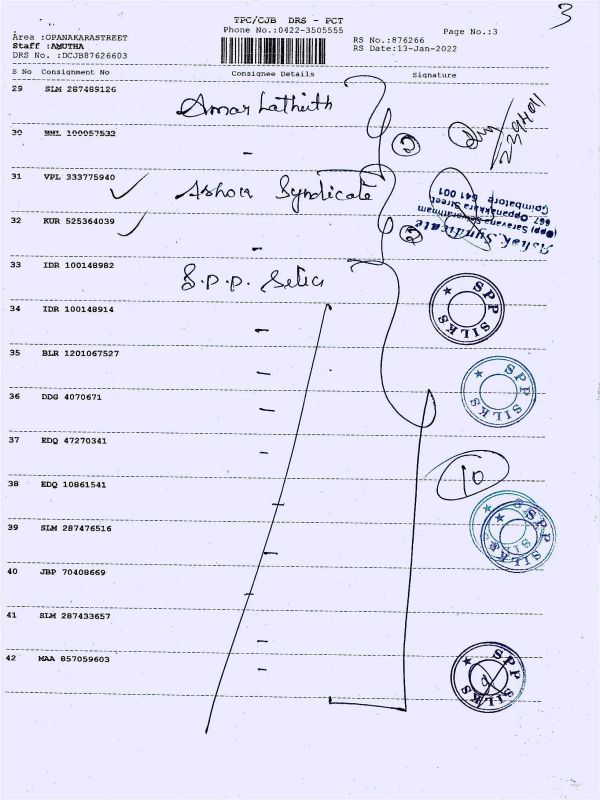 3
TPC/CJB DRS - PCT
Area :OPANAKARASTREET
Phone No.:0422-3505555
Page No.:3
Staff :AMUTHA
RS No.:876266
DRS No. :DCJB87626603
RS Date:13-Jan-2022
S No Consignment No Consignee Details Signature
29 SLM 287489126
30 BML 100057532
2
31 VPL 333775940 Ashok Syndicate
Ashok Syndicate
667, Oppanakkara Street
Coimbatore 641 001
32 KUR 525364039
2
33 IDR 100148982 S.P.P. Silks
34 IDR 100148914
SPP SILKS
35 BLR 1201067527
SPP SILKS
36 DDG 4070671
37 EDQ 47270341
10
38 EDQ 10861541
39 SLM 287476516
SPP SILKS
40 JBP 70408669
41 SLM 287433657
42 MAA 857059603
SPP SILKS